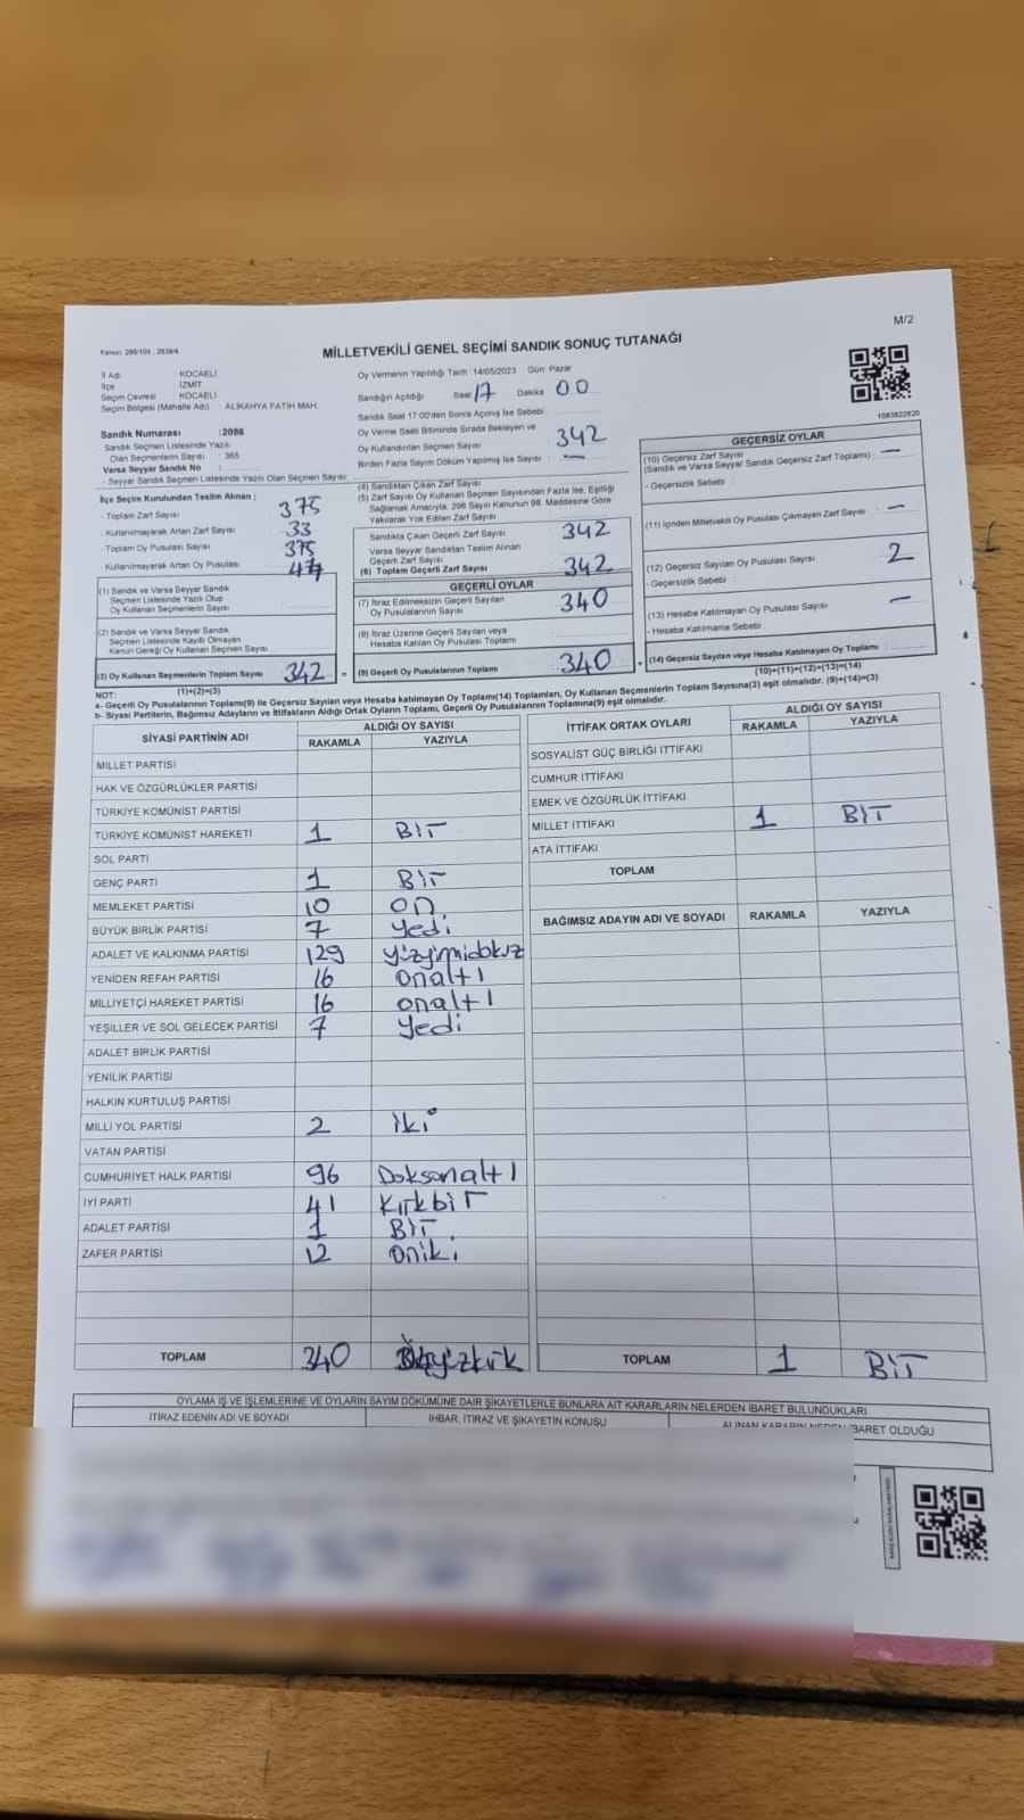 M/2
MİLLETVEKİLİ GENEL SEÇİMİ SANDIK SONUÇ TUTANAĞI
İl Adı : KOCAELİ
İlçe : İZMİT
Seçim Çevresi : KOCAELİ
Seçim Bölgesi (Mahalle Adı) : ALİKAHYA FATİH MAH.
Oy Vermenin Yapıldığı Tarih 14/05/2023 Gün: Pazar
Sandığın Açıldığı Saat 17 Dakika 00
Sandık Saat 17:00'den Sonra Açılmış İse Sebebi
Oy Verme Saati Bitiminde Sırada Bekleyen ve
Oy Kullandırılan Seçmen Sayısı 342
Birden Fazla Sayım Döküm Yapılmış İse Sayısı : —
1083822820
Sandık Numarası :2086
Sandık Seçmen Listesinde Yazılı
Olan Seçmenlerin Sayısı : 365
Varsa Seyyar Sandık No :
- Seyyar Sandık Seçmen Listesinde Yazılı Olan Seçmen Sayısı
İlçe Seçim Kurulundan Teslim Alınan :
- Toplam Zarf Sayısı 375
- Kullanılmayarak Artan Zarf Sayısı 33
- Toplam Oy Pusulası Sayısı 375
- Kullanılmayarak Artan Oy Pusulası
(1) Sandık ve Varsa Seyyar Sandık
Seçmen Listesinde Yazılı Olup
Oy Kullanan Seçmenlerin Sayısı
(2) Sandık ve Varsa Seyyar Sandık
Seçmen Listesinde Kayıtlı Olmayan
Kanun Gereği Oy Kullanan Seçmen Sayısı
(3) Oy Kullanan Seçmenlerin Toplam Sayısı 342
(1)+(2)=(3)
(4) Sandıktan Çıkan Zarf Sayısı
(5) Zarf Sayısı Oy Kullanan Seçmen Sayısından Fazla İse, Eşitliği
Sağlamak Amacıyla, 298 Sayılı Kanunun 98. Maddesine Göre
Yakılarak Yok Edilen Zarf Sayısı
Sandıkta Çıkan Geçerli Zarf Sayısı 342
Varsa Seyyar Sandıktan Teslim Alınan
Geçerli Zarf Sayısı
(6) Toplam Geçerli Zarf Sayısı 342
GEÇERLİ OYLAR
(7) İtiraz Edilmeksizin Geçerli Sayılan
Oy Pusulalarının Sayısı 340
(8) İtiraz Üzerine Geçerli Sayılan veya
Hesaba Katılan Oy Pusulası Toplamı
(9) Geçerli Oy Pusulalarının Toplamı 340
GEÇERSİZ OYLAR
(10) Geçersiz Zarf Sayısı
(Sandık ve Varsa Seyyar Sandık Geçersiz Zarf Toplamı) : —
- Geçersizlik Sebebi
(11) İçinden Milletvekili Oy Pusulası Çıkmayan Zarf Sayısı —
(12) Geçersiz Sayılan Oy Pusulası Sayısı 2
- Geçersizlik Sebebi
(13) Hesaba Katılmayan Oy Pusulası Sayısı —
- Hesaba Katılmama Sebebi
(14) Geçersiz Sayılan veya Hesaba Katılmayan Oy Toplamı
(10)+(11)+(12)+(13)=(14)
NOT:
a- Geçerli Oy Pusulalarının Toplamı(9) ile Geçersiz Sayılan veya Hesaba katılmayan Oy Toplamı(14) Toplamları, Oy Kullanan Seçmenlerin Toplam Sayısına(3) eşit olmalıdır. (9)+(14)=(3)
b- Siyasi Partilerin, Bağımsız Adayların ve İttifakların Aldığı Ortak Oyların Toplamı, Geçerli Oy Pusulalarının Toplamına(9) eşit olmalıdır.
SİYASİ PARTİNİN ADI ALDIĞI OY SAYISI
RAKAMLA YAZIYLA
MİLLET PARTİSİ
HAK VE ÖZGÜRLÜKLER PARTİSİ
TÜRKİYE KOMÜNİST PARTİSİ
TÜRKİYE KOMÜNİST HAREKETİ 1 Bir
SOL PARTİ
GENÇ PARTİ 1 Bir
MEMLEKET PARTİSİ 10 on
BÜYÜK BİRLİK PARTİSİ 7 Yedi
ADALET VE KALKINMA PARTİSİ 129 yüzyirmidokuz
YENİDEN REFAH PARTİSİ 16 onaltı
MİLLİYETÇİ HAREKET PARTİSİ 16 onaltı
YEŞİLLER VE SOL GELECEK PARTİSİ 7 Yedi
ADALET BİRLİK PARTİSİ
YENİLİK PARTİSİ
HALKIN KURTULUŞ PARTİSİ
MİLLİ YOL PARTİSİ 2 iki
VATAN PARTİSİ
CUMHURİYET HALK PARTİSİ 96 Doksanaltı
İYİ PARTİ 41 Kırkbir
ADALET PARTİSİ 1 Bir
ZAFER PARTİSİ 12 oniki
TOPLAM 340
İTTİFAK ORTAK OYLARI ALDIĞI OY SAYISI
RAKAMLA YAZIYLA
SOSYALİST GÜÇ BİRLİĞİ İTTİFAKI
CUMHUR İTTİFAKI
EMEK VE ÖZGÜRLÜK İTTİFAKI
MİLLET İTTİFAKI 1 Bir
ATA İTTİFAKI
TOPLAM
BAĞIMSIZ ADAYIN ADI VE SOYADI RAKAMLA YAZIYLA
TOPLAM 1 Bir
OYLAMA İŞ VE İŞLEMLERİNE VE OYLARIN SAYIM DÖKÜMÜNE DAİR ŞİKAYETLERLE BUNLARA AİT KARARLARIN NELERDEN İBARET BULUNDUKLARI
İTİRAZ EDENİN ADI VE SOYADI İHBAR, İTİRAZ VE ŞİKAYETİN KONUSU ALINAN KARARIN NEDEN İBARET OLDUĞU